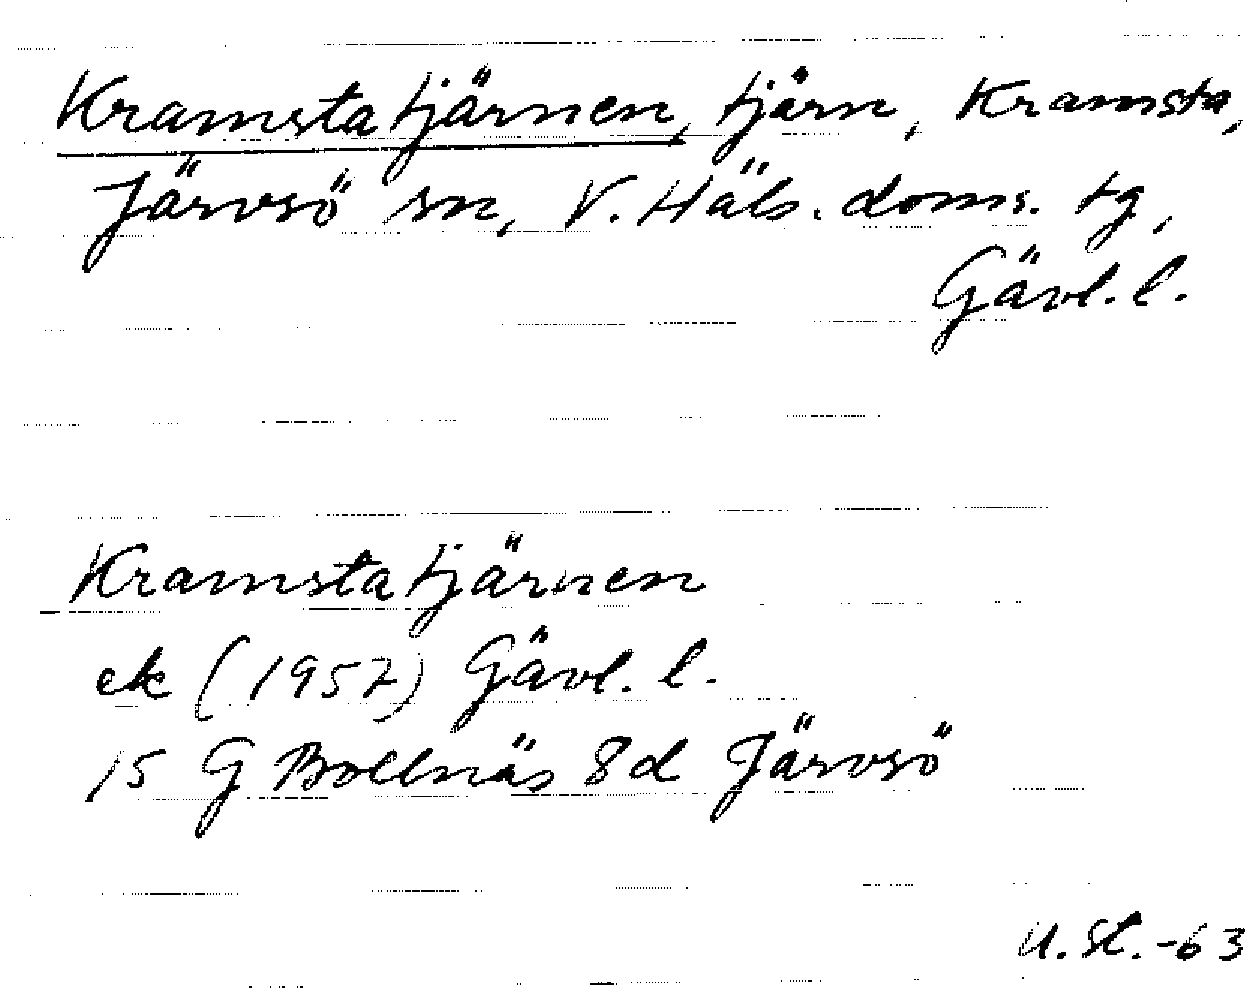 Kramstatjärnen, tjärn, Kramsta,
Järvsö sn, V. Häls. doms. tg,
Gävl. l.
Kramstatjärnen
ek (1957) Gävl. l.
15 G Bollnäs 8d Järvsö
U. St. -63